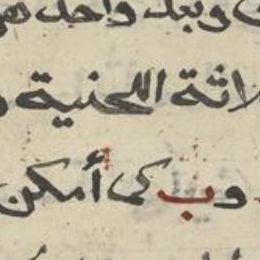 وبعد واحد
لاثة اللحنية
وب كما أمكن